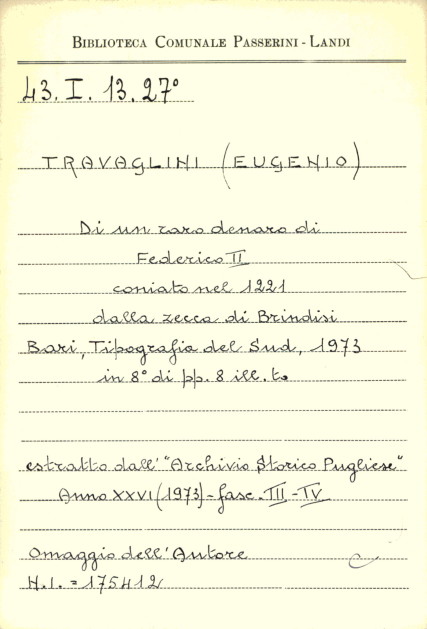 BIBLIOTECA COMUNALE PASSERINI - LANDI
43. I. 13. 27°
TRAVAGLINI (EUGENIO)
Di un raro denaro di
Federico II
coniato nel 1221
dalla zecca di Brindisi
Bari, Tipografia del Sud, 1973
in 8° di pp. 8 ill. to
estratto dall' "Archivio Storico Pugliese"
Anno XXVI (1973) - fasc. III - IV
Omaggio dell'Autore
N.I. = 175412